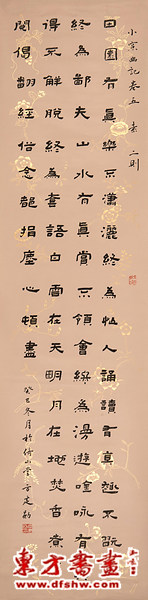 小窗幽记卷五 素 二則
田園有真樂不瀟灑終為忙人誦讀有真趣不翫
終為鄙夫山水有真賞不領會終為漫遊吟咏有
得不解脫終為套語白雲在天明月在地焚香煮
閱偈翻經俗念都捐塵心頓盡
癸巳冬月於
東方書畫
www.dfshw.com